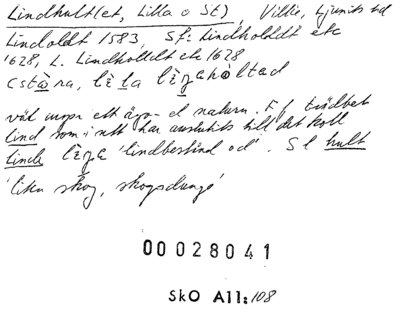 Lindhult(et, Lilla o St), Villie, Ljunits hd
Lindoldt 1583, Sf: Lindholddt etc
1628, L. Lindholldt etc 1628
(stòra, lèla
väl urspr ett ägo- el naturn. F f trädbet
lind som i sitt har anslutits till det koll
linde 'lindbestånd od'. S l hult
'liten skog, skogsdunge'
00028041
SkO All: 108